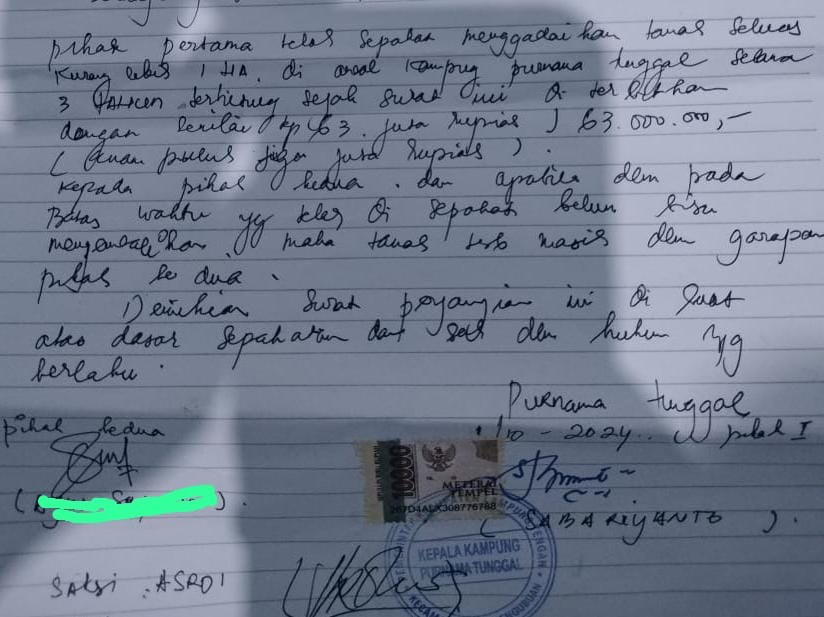 pihak pertama telah sepakat menggadaikan tanah seluas
Kurang lebih 1 HA. di areal Kampung purnama tunggal selama
3 TAHUN terhitung sejak surat ini di terbitkan
dengan senilai Rp 63. juta rupiah ) 63.000.000,-
( enam puluh tiga juta Rupiah ) .
kepada pihak kedua . dan apabila dlm pada
Batas waktu yg telah di sepakati belum bisa
mengembalikan , maka tanah tersb masih dlm garapan
pihak ke dua .
Demikian Surat perjanjian ini di buat
atas dasar sepakatan dan sah dlm hukum yg
berlaku .
Purnama tunggal
pihak kedua
/10 - 2024 .. pihak I
10000
METERAI
TEMPEL
267D4ALX308776788
( SABARIYANTO ) .
KEPALA KAMPUNG
PURNAMA TUNGGAL
Saksi . ASRDI